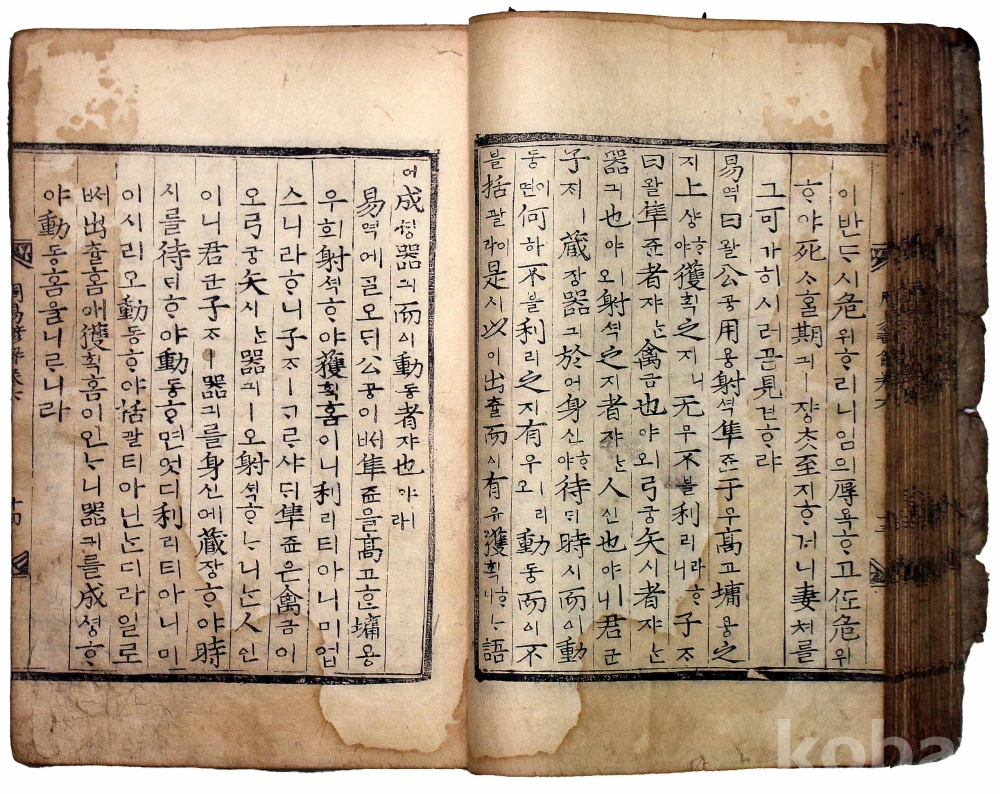 이반ᄃᆞ시危위ᄒᆞ리니임의辱욕ᄒᆞ고ᄯᅩ危위
ᄒᆞ야死ᄉᆞ홀期긔ㅣ쟝ᄎᆞᆺ至지ᄒᆞ거니妻쳐를
그可가히시러곰見견ᄒᆞ랴
易역曰왈公공用용射셕隼쥰于우高고墉용之
지上샹ᄒᆞ야獲획之지니无무不블利리라ᄒᆞ니子ᄌᆞ
曰왈隼쥰者쟈ᄂᆞᆫ禽금也야오弓궁矢시者쟈ᄂᆞᆫ
器긔也야오射셕之지者쟈ᄂᆞᆫ人인也야니君군
子ᄌᆞㅣ藏장器긔於어身신ᄒᆞ야待ᄃᆡ時시而이動
동이면何하不블利리之지有유ㅣ리오動동而이不
블括괄이라是시以이出츌而이有유獲획ᄒᆞᄂᆞ니語
어成셩器긔而이動동者쟈也야ㅣ라
易역에ᄀᆞᆯ오ᄃᆡ公공이ᄡᅥ隼쥰을高고ᄒᆞᆫ墉용
우희射셕ᄒᆞ야獲획홈이니利리티아니미업
스니라ᄒᆞ니子ᄌᆞㅣᄀᆞᄅᆞ샤ᄃᆡ隼쥰은禽금이
오弓궁矢시ᄂᆞᆫ器긔ㅣ오射셕ᄒᆞᄂᆞ니ᄂᆞᆫ人인
이니君군子ᄌᆞㅣ器긔를身신에藏장ᄒᆞ야時
시를待ᄃᆡᄒᆞ야動동ᄒᆞ면엇디利리티아니미
이시리오動동ᄒᆞ야括괄티아닌ᄂᆞᆫ디라일로
ᄡᅥ出츌홈애獲획홈이인ᄂᆞ니器긔를成셩ᄒᆞ
야動동홈을니ᄅᆞ니라
周易諺解卷六
十四
koba